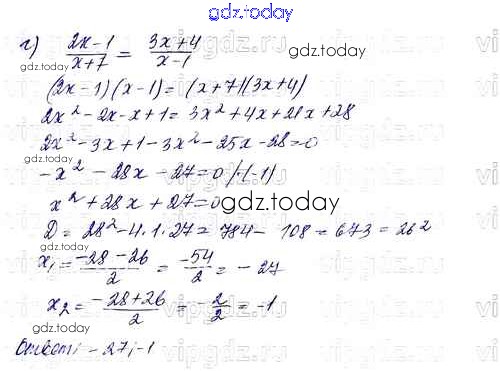 gdz.today
г) (2x-1)/(x+7) = (3x+4)/(x-1)
gdz.today
gdz.today
(2x-1)(x-1)=(x+7)(3x+4)
2x²-2x-x+1=3x²+4x+21x+28
2x²-3x+1-3x²-25x-28=0
-x²-28x-27=0 /·(-1)
x²+28x+27=0
gdz.today
D=28²-4·1·27=784-108=673=26²
x₁=(-28-26)/2=-54/2=-27
x₂=(-28+26)/2=-2/2=-1
gdz.today
Ответ: -27; -1